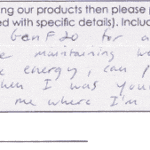 ing our products then please p
ed with specific details]. Includ
GenF20 for a
maintaining we
energy, can p
when I was youn
me where I'm